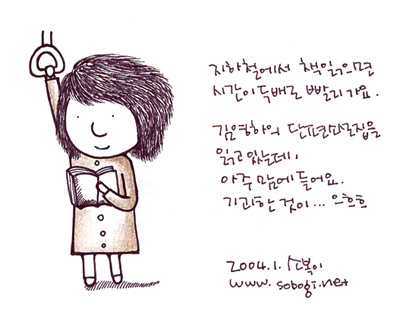 지하철에서 책읽으면
시간이 두배로 빨리 가요.
김영하의 단편소설집을
읽고 있는데,
아주 맘에 들어요.
기괴한 것이... 으흐흐
2004.1. 소복이
www.sobogi.net